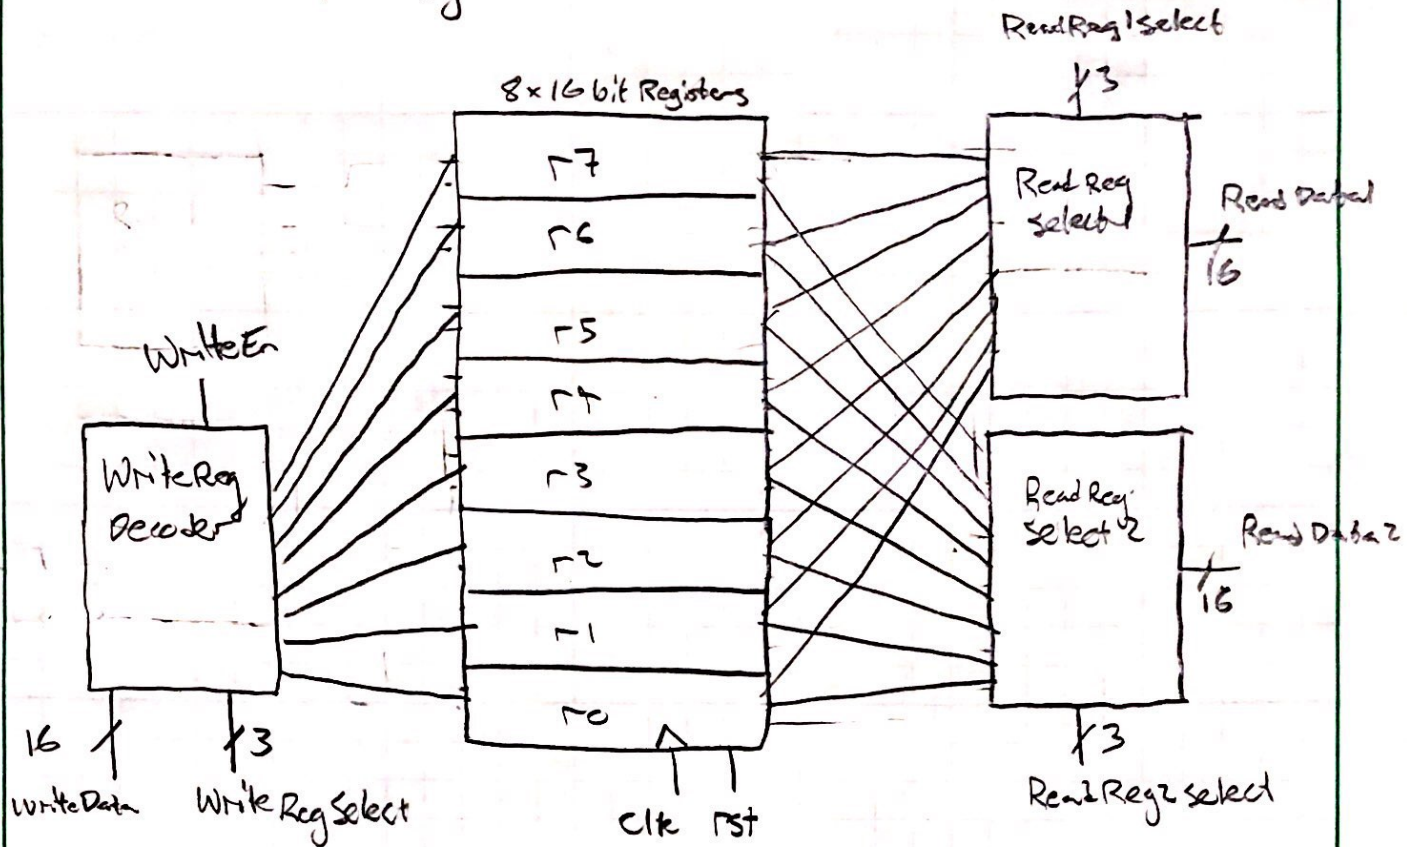 ReadReg1select
3
8x16 bit Registers
r7
r6
r5
r4
r3
r2
r1
r0
ReadReg
select1
ReadData1
16
WriteEn
WriteReg
Decoder
ReadReg
select2
ReadData2
16
16
3
WriteData
WriteRegSelect
clk
rst
3
ReadReg2select